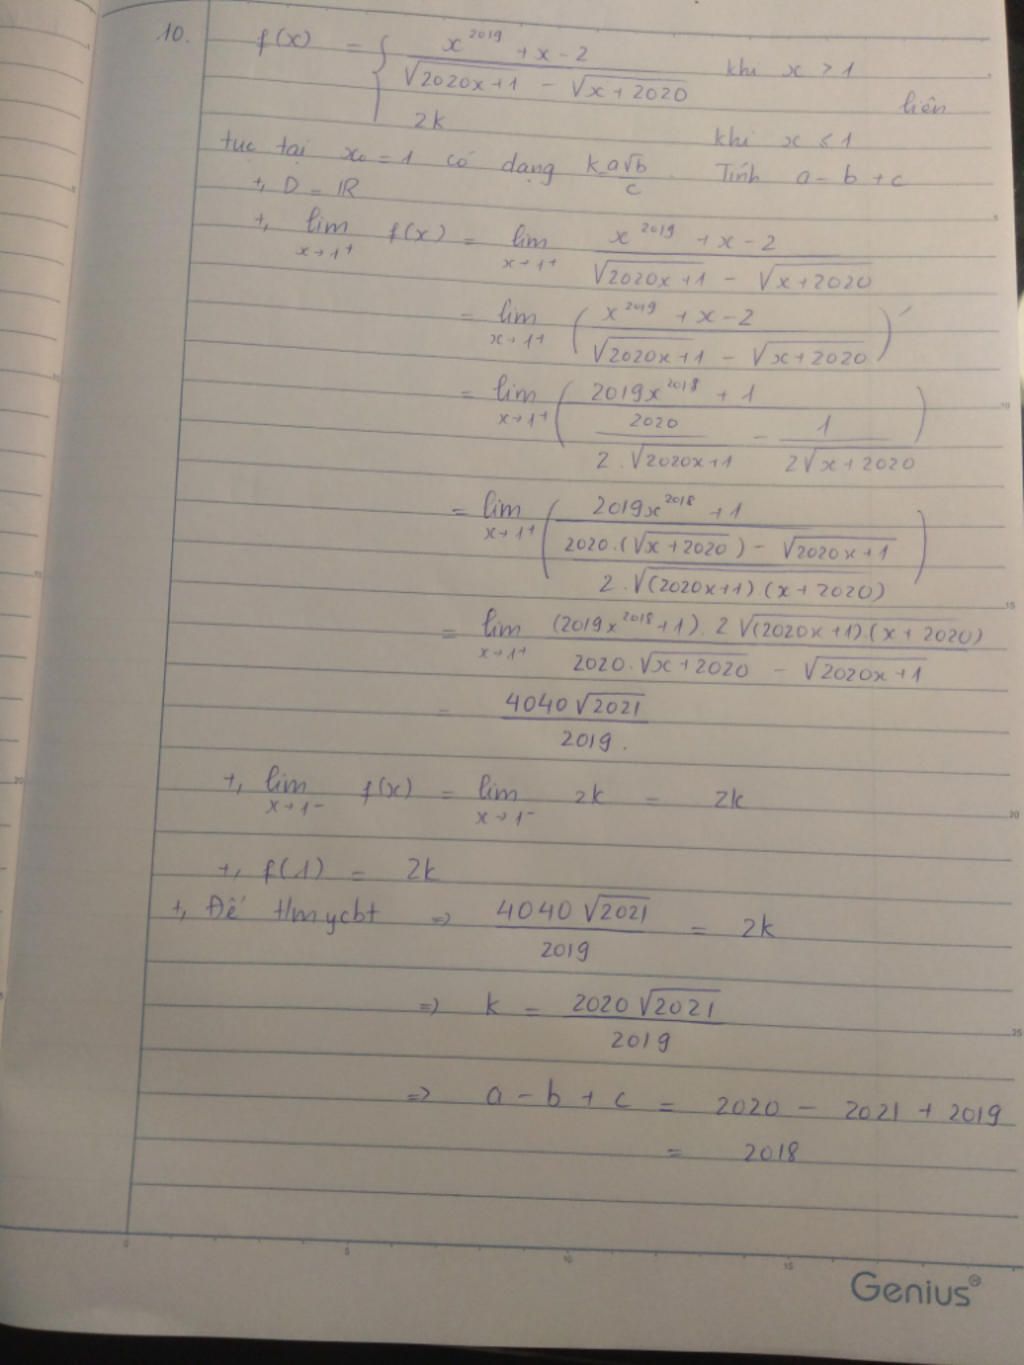 10. f(x) = { x^2019 + x - 2 / √2020x+1 - √x+2020 khi x > 1
2k khi x ≤ 1 liên
tục tại x₀ = 1 có dạng k = a√b / c . Tính a - b + c
+, D = IR
+, lim x→1⁺ f(x) = lim x→1⁺ x^2019 + x - 2 / √2020x+1 - √x+2020
= lim x→1⁺ ( x^2019 + x - 2 / √2020x+1 - √x+2020 )'
= lim x→1⁺ ( 2019x^2018 + 1 / 2020 / 2.√2020x+1 - 1 / 2√x+2020 )
= lim x→1⁺ ( 2019x^2018 + 1 / 2020.(√x+2020) - √2020x+1 / 2.√(2020x+1).(x+2020) )
= lim x→1⁺ (2019x^2018+1). 2√(2020x+1).(x+2020) / 2020.√x+2020 - √2020x+1
= 4040√2021 / 2019.
+, lim x→1⁻ f(x) = lim x→1⁻ 2k = 2k
+, f(1) = 2k
+, Để t/mycbt => 4040√2021 / 2019 = 2k
=> k = 2020√2021 / 2019
=> a - b + c = 2020 - 2021 + 2019
= 2018
Genius